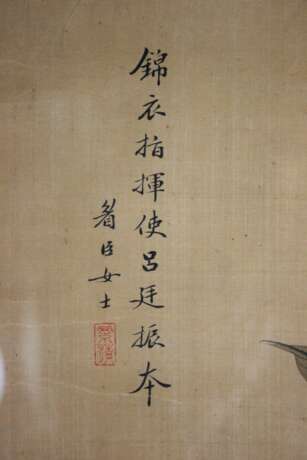 錦衣指揮使呂廷振本
眉臣女士